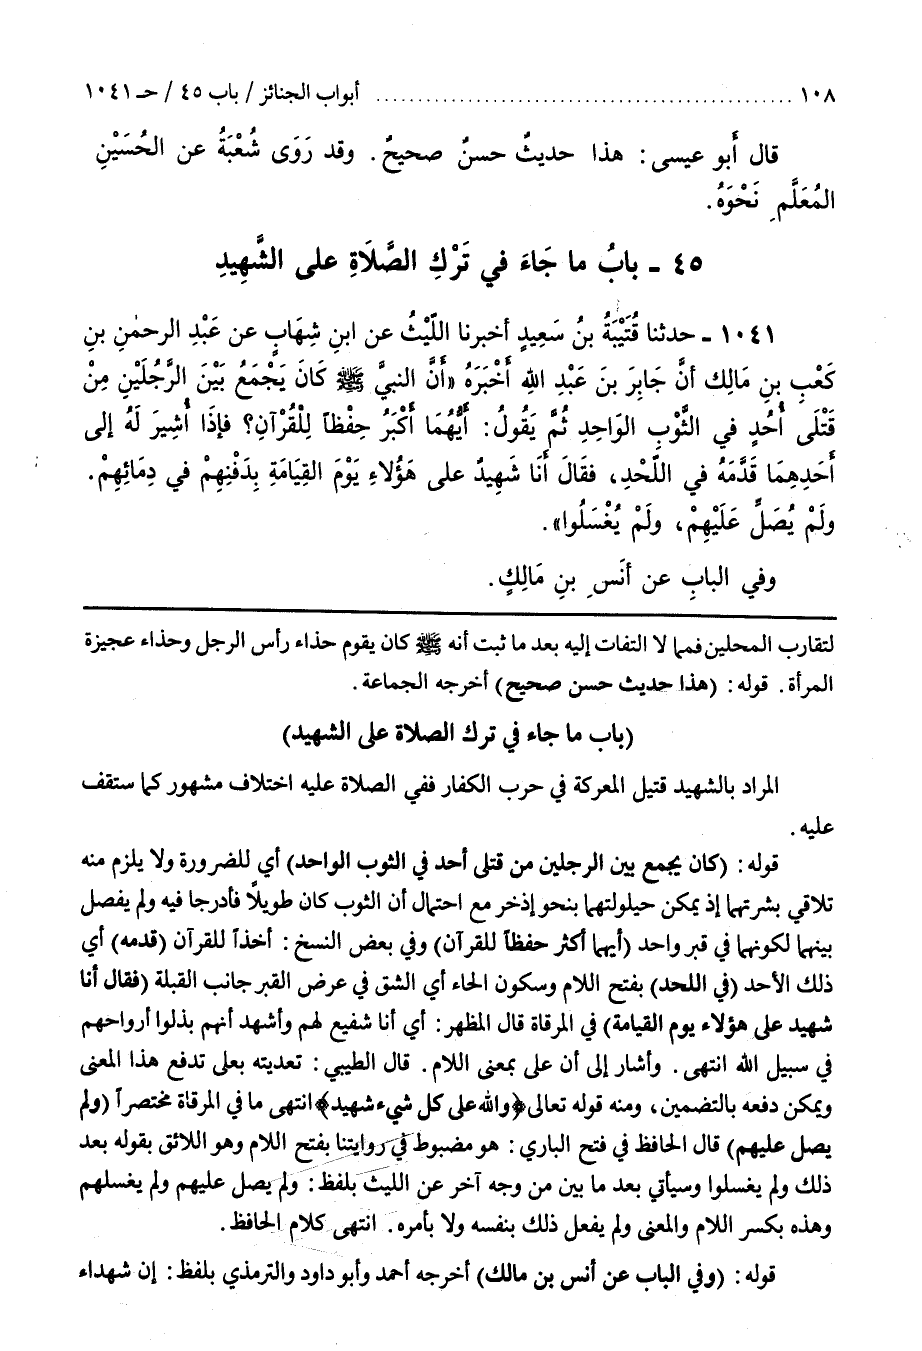 ١٠٨ ........................................ أبواب الجنائز / باب ٤٥ / حـ ١٠٤١
قال أَبو عيسى: هذا حديثٌ حسنٌ صحيحٌ. وقد رَوَى شُعْبَةُ عن الحُسَيْنِ
المُعَلَّمِ نَحْوَهُ.
٤٥ ـ بابُ ما جَاءَ في تَرْكِ الصَّلَاةِ على الشَّهِيدِ
١٠٤١ ـ حدثنا قُتَيْبَةُ بنُ سَعِيدٍ أخبرنا اللّيْثُ عن ابنِ شِهَابٍ عن عَبْدِ الرحمٰنِ بنِ
كَعْبِ بنِ مَالِكٍ أنَّ جَابِرَ بنَ عَبْدِ اللهِ أَخْبَرَهُ «أَنَّ النبيَّ ﷺ كَانَ يَجْمَعُ بَيْنَ الرَّجُلَيْنِ مِنْ
قَتْلَى أُحُدٍ في الثَّوْبِ الوَاحِدِ ثُمَّ يَقُولُ: أَيُّهُمَا أَكْبَرُ حِفْظاً لِلْقُرْآنِ؟ فإِذَا أُشِيرَ لَهُ إلى
أَحَدِهِمَا قَدَّمَهُ في اللّحْدِ، فقَالَ أَنَا شَهِيدٌ على هَؤُلَاءِ يَوْمَ القِيَامَةِ بِدَفْنِهِمْ في دِمَائِهِمْ.
ولَمْ يُصَلِّ عَلَيْهِمْ، ولَمْ يُغْسَلُوا».
وفي البابِ عن أنَسِ بنِ مَالِكٍ.
لتقارب المحلين فمما لا التفات إليه بعد ما ثبت أنه ﷺ كان يقوم حذاء رأس الرجل وحذاء عجيزة
المرأة. قوله: (هذا حديث حسن صحيح) أخرجه الجماعة.
(باب ما جاء في ترك الصلاة على الشهيد)
المراد بالشهيد قتيل المعركة في حرب الكفار ففي الصلاة عليه اختلاف مشهور كما ستقف
عليه.
قوله: (كان يجمع بين الرجلين من قتلى أحد في الثوب الواحد) أي للضرورة ولا يلزم منه
تلاقي بشرتهما إذ يمكن حيلولتهما بنحو إذخر مع احتمال أن الثوب كان طويلاً فأدرجا فيه ولم يفصل
بينهما لكونهما في قبر واحد (أيهما أكثر حفظاً للقرآن) وفي بعض النسخ: أخذاً للقرآن (قدمه) أي
ذلك الأحد (في اللحد) بفتح اللام وسكون الحاء أي الشق في عرض القبر جانب القبلة (فقال أنا
شهيد على هؤلاء يوم القيامة) في المرقاة قال المظهر: أي أنا شفيع لهم وأشهد أنهم بذلوا أرواحهم
في سبيل الله انتهى. وأشار إلى أن على بمعنى اللام. قال الطيبي: تعديته بعلى تدفع هذا المعنى
ويمكن دفعه بالتضمين، ومنه قوله تعالى ﴿والله على كل شيء شهيد﴾ انتهى ما في المرقاة مختصراً (ولم
يصل عليهم) قال الحافظ في فتح الباري: هو مضبوط في روايتنا بفتح اللام وهو اللائق بقوله بعد
ذلك ولم يغسلوا وسيأتي بعد ما بين من وجه آخر عن الليث بلفظ: ولم يصل عليهم ولم يغسلهم
وهذه بكسر اللام والمعنى ولم يفعل ذلك بنفسه ولا بأمره. انتهى كلام الحافظ.
قوله: (وفي الباب عن أنس بن مالك) أخرجه أحمد وأبو داود والترمذي بلفظ: إن شهداء